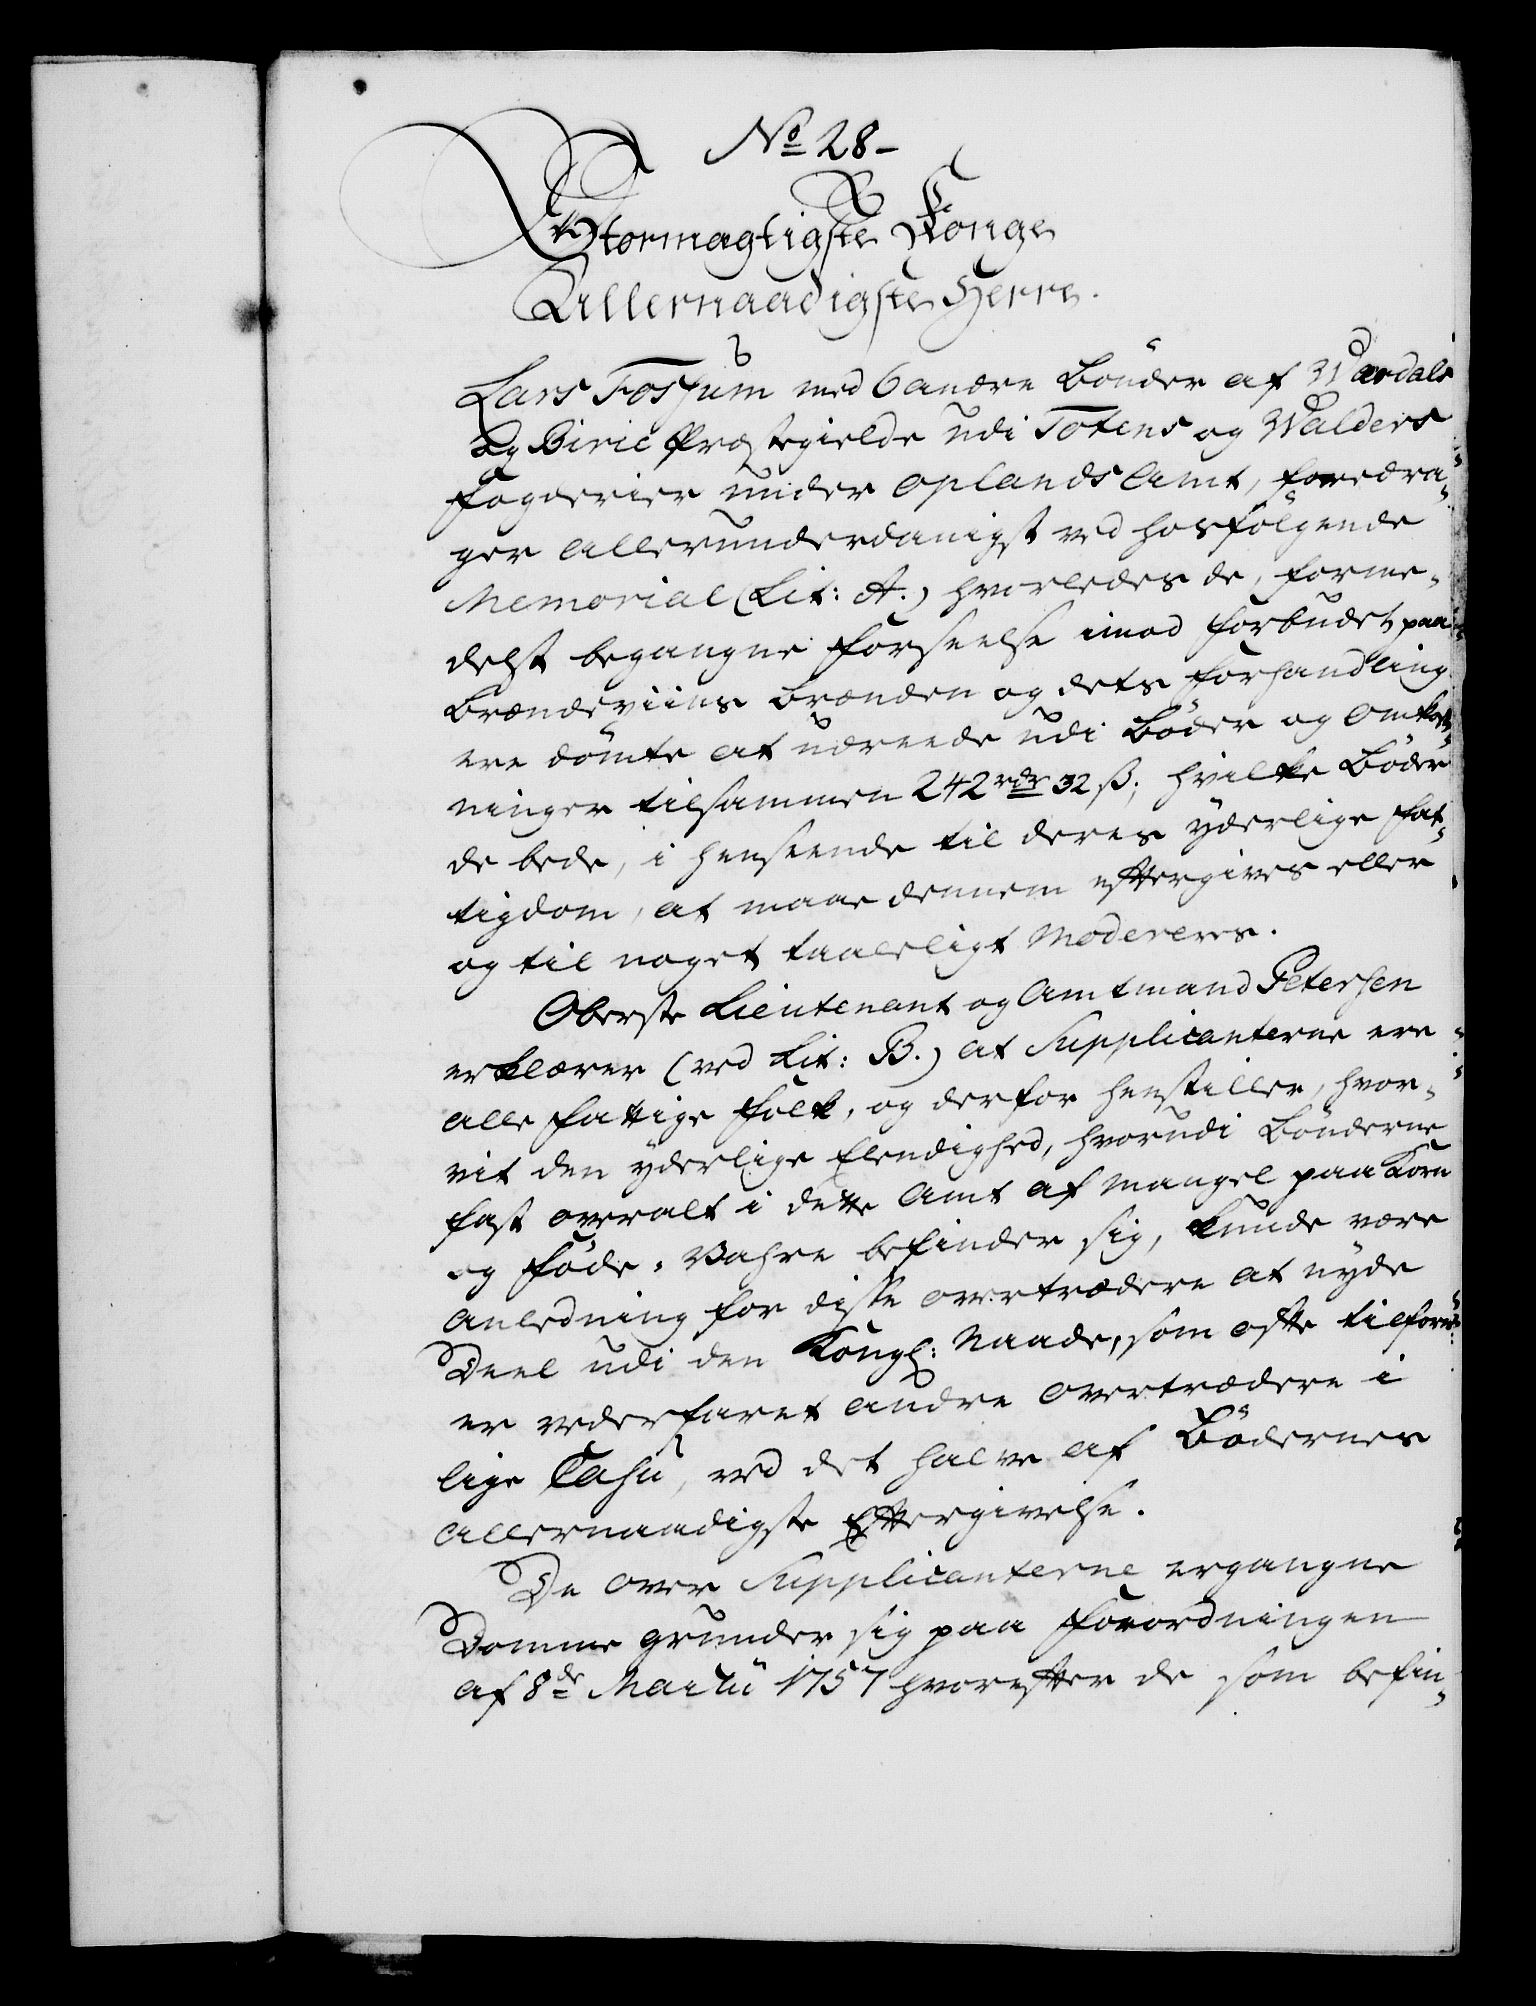 No 28-
Stormægtigste Konge
Allernaadigste Herre.
Lars Fossum med 6 andre Bönder af Wardals
og Birie Præstegielde udi Totens og Walders
Fogderier under Oplands Amt, foredra-
ger allerunderdanigst ved hosfölgende
Memorial (Lit: A.) hvorledes de, forme-
delst begangne Forseelse imod Forbudet paa
Brændeviins Brænden og dets Forhandling
ere dömte at udreede udi Böder og Omkost-
ninger tilsammen 242 rdr 32 ß; hvilke Böder
de bede, i henseende til deres yderlige Fat-
tigdom, at maae dennem eftergives eller
og til noget taaleligt Modereres.
Oberste Lieutenant og Amtmand Petersen
erklærer (ved Lit: B.) at Supplicanterne ere
alle fattige Folk, og derfor henstiller, hvor-
vit den yderlige Elendighed, hvorudi Bönderne
fast overalt i dette Amt af Mangel paa Korn
og Föde-Vahre befinder sig, kunde være
Anledning for disse Overtrædere at nyde
Deel udi den Kongl: Naade, som ofte tilforn
er vederfaret andre Overtrædere i
lige Casu, ved det halve af Bödernes
allernaadigste Eftergivelse.
De over Supplicanterne ergangne
Domme grunder sig paa Forordningen
af 8de Martii 1757 hvorefter de som befin-